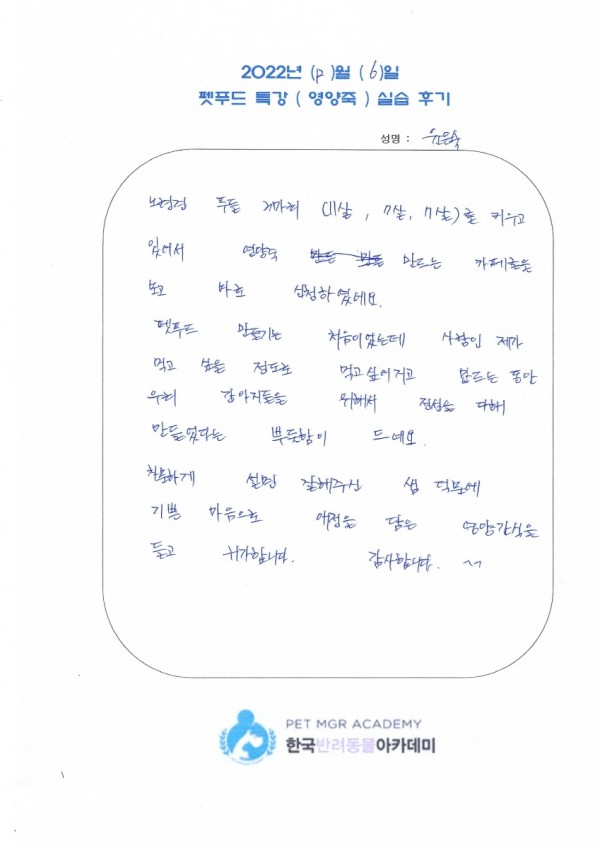 2022년 (12)월 (6)일
펫푸드 특강 ( 영양죽 ) 실습 후기
성명 : 유은숙
노령견 푸들 3마리 (11살, 7살, 7살)를 키우고
있어서 영양죽 만드는 카페글을
보고 바로 신청하였네요.
펫푸드 만들기는 처음이었는데 사람인 제가
먹고 싶을 정도로 먹고싶어지고 만드는 동안
우리 강아지들을 위해서 정성을 다해
만들었다는 뿌듯함이 드네요.
친절하게 설명 잘해주신 쌤 덕분에
기쁜 마음으로 애정을 담은 영양간식을
들고 귀가합니다. 감사합니다. ~
PET MGR ACADEMY
한국반려동물아카데미